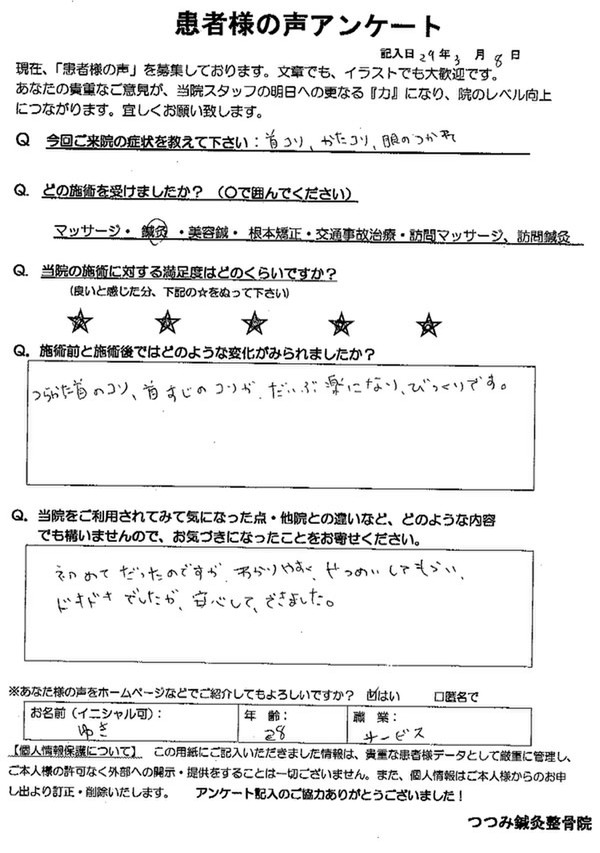 患者様の声アンケート
記入日 29年 3 月 8 日
現在、「患者様の声」を募集しております。文章でも、イラストでも大歓迎です。
あなたの貴重なご意見が、当院スタッフの明日への更なる『力』になり、院のレベル向上
につながります。宜しくお願い致します。
Q 今回ご来院の症状を教えて下さい：首コリ、かたコリ、眼のつかれ
Q. どの施術を受けましたか？（〇で囲んでください）
マッサージ・ 鍼灸 ・美容鍼・ 根本矯正・交通事故治療・訪問マッサージ、訪問鍼灸
Q. 当院の施術に対する満足度はどのくらいですか？
（良いと感じた分、下記の☆をぬって下さい）
☆ ☆ ☆ ☆ ☆
Q. 施術前と施術後ではどのような変化がみられましたか？
つらかた首のコリ、首すじのコリが、だいぶ楽になり、びっくりです。
Q. 当院をご利用されてみて気になった点・他院との違いなど、どのような内容
でも構いませんので、お気づきになったことをお寄せください。
初めてだったのですが、わかりやすく、せつめいしてもらい、
ドキドキでしたが、安心して、できました。
※あなた様の声をホームページなどでご紹介してもよろしいですか？ ☑はい □匿名で
お名前（イニシャル可）： 年 齢： 職 業：
ゆき 28 サービス
【個人情報保護について】 この用紙にご記入いただきました情報は、貴重な患者様データとして厳重に管理し、
ご本人様の許可なく外部への開示・提供をすることは一切ございません。また、個人情報はご本人様からのお申
し出より訂正・削除いたします。 アンケート記入のご協力ありがとうございました！
つつみ鍼灸整骨院